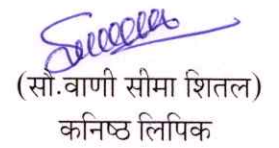 (सौ.वाणी सीमा शितल)
कनिष्ठ लिपिक